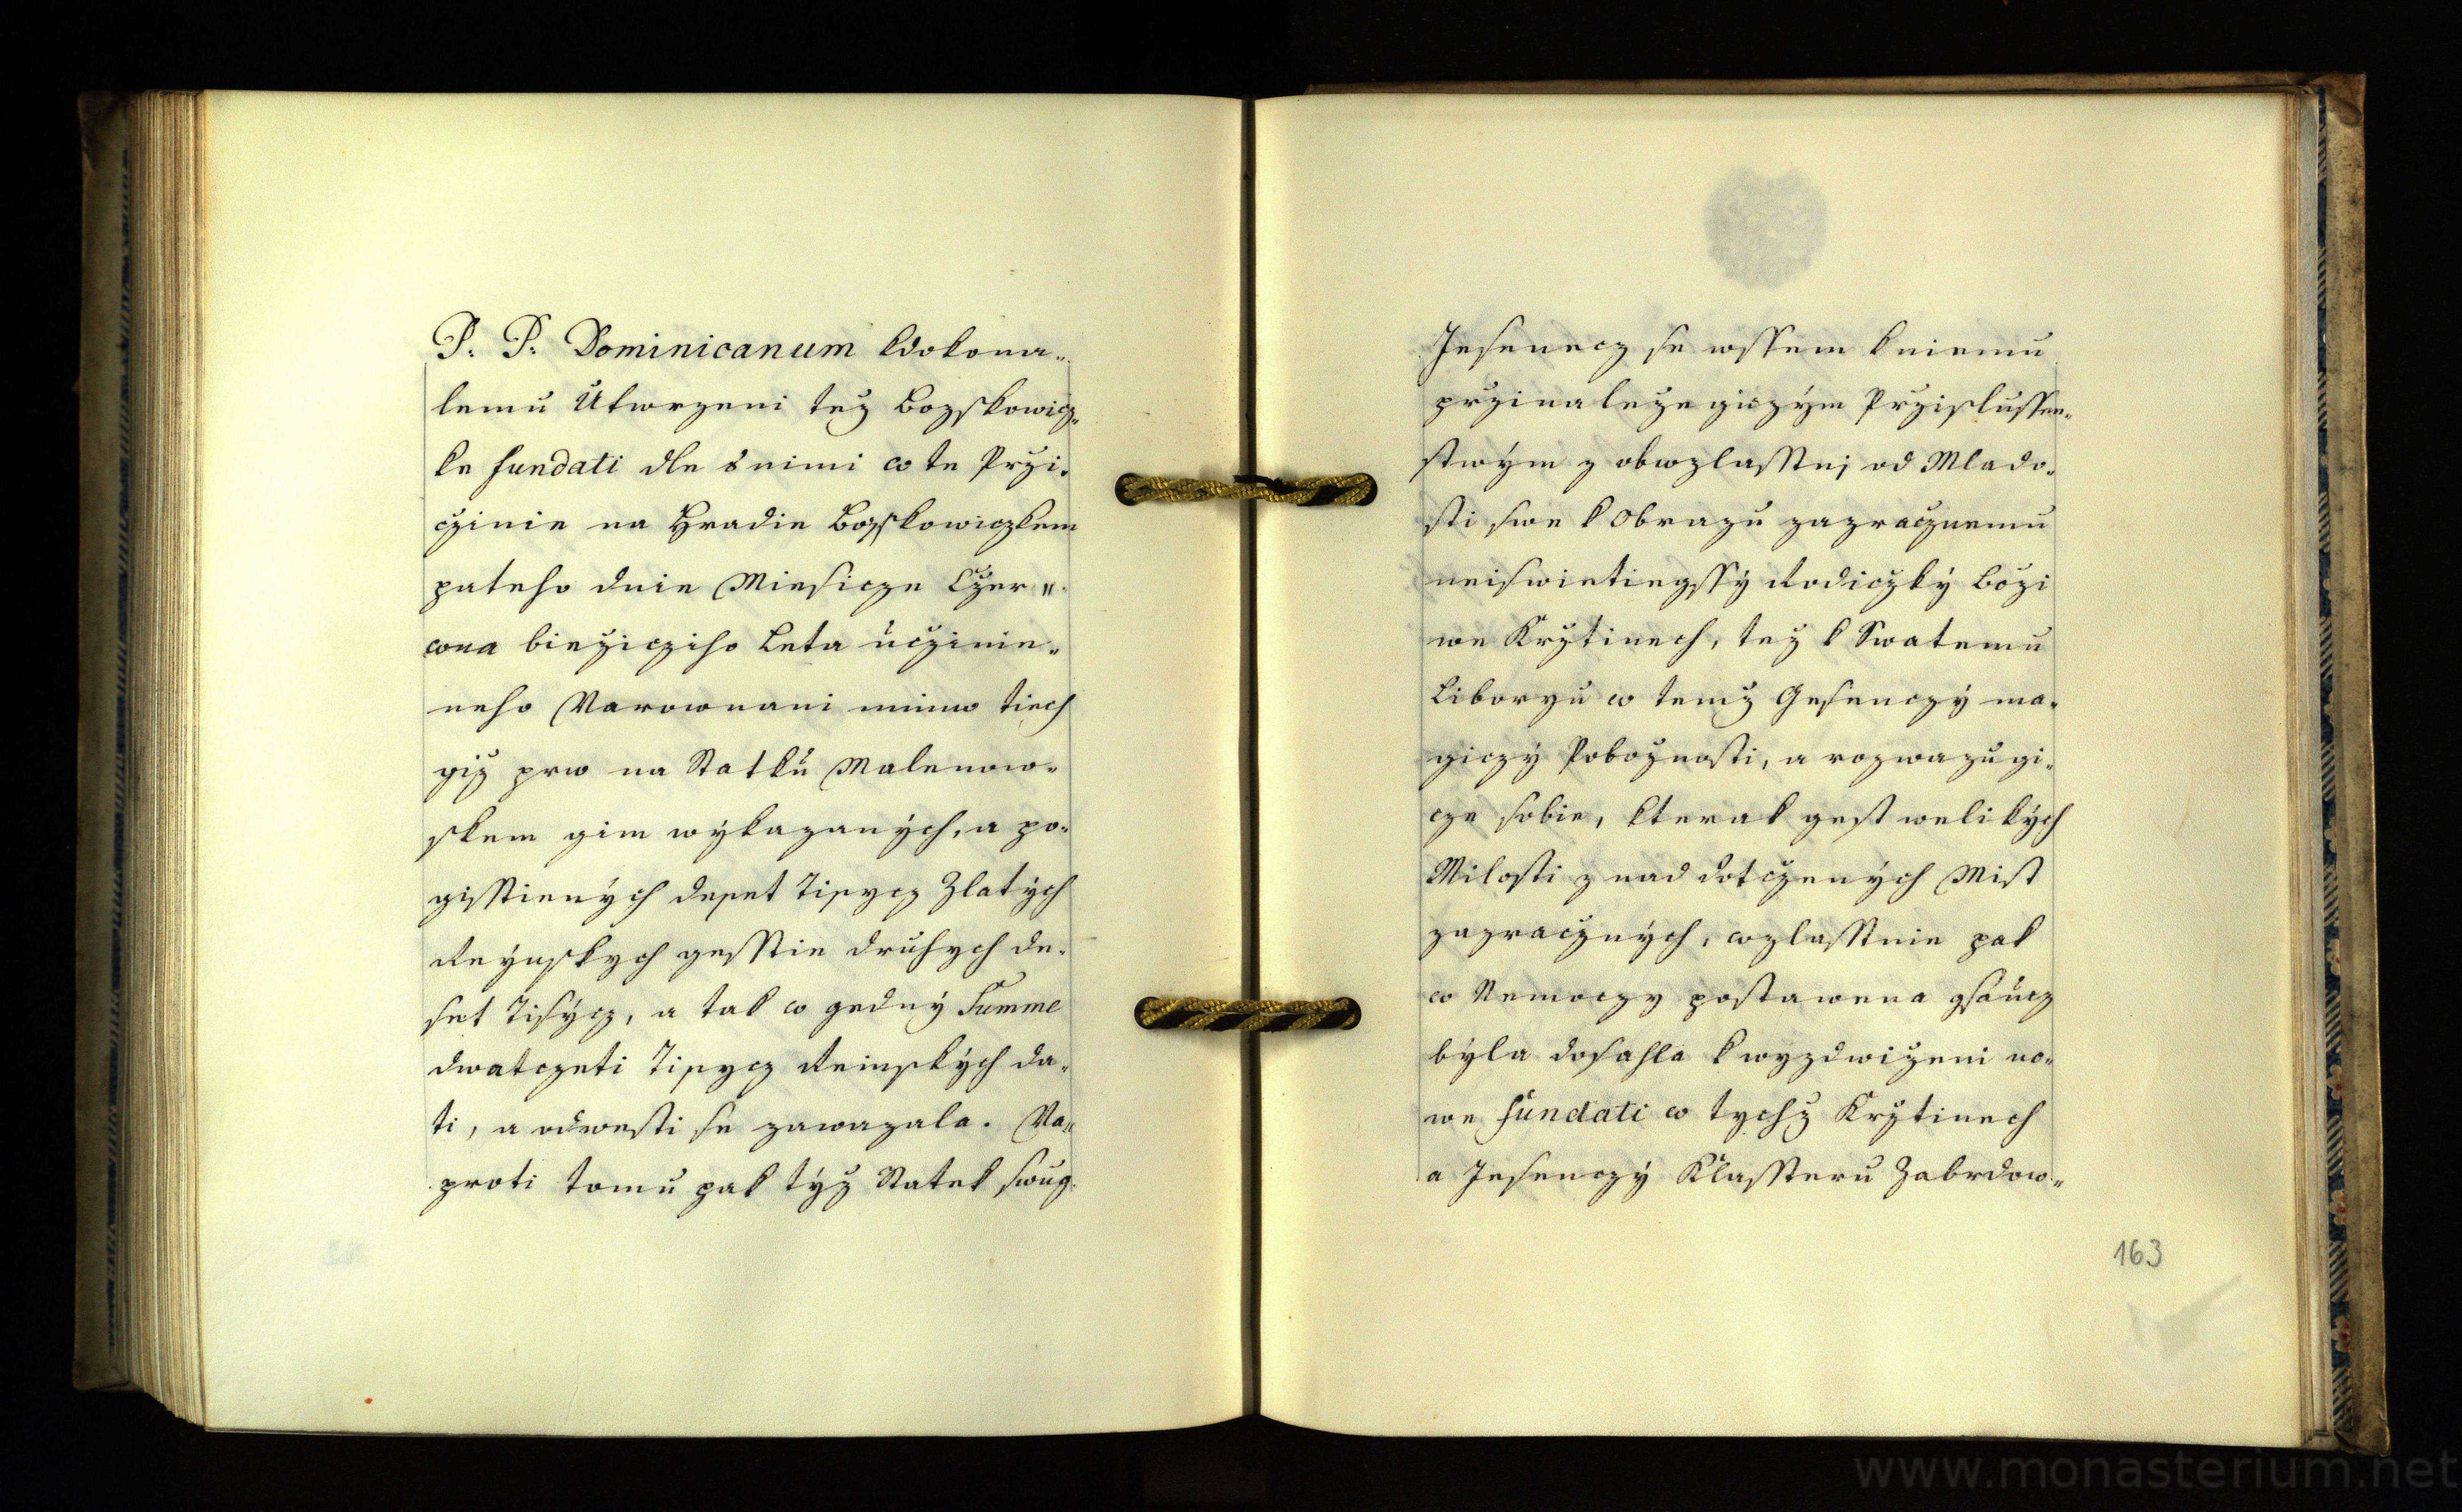 P: P: Dominicanum kdokona-
lemu Utworzeni teź Bozskowicz-
ke fundati dle s nimi w te Przi-
czinie na Hradie Bozskowiczkem
pateho dnie Miesicze Czer-
wna bieźicziho Leta uczinie-
neho Narownani mimo tiech
giź prw na Statku Malenow-
skem gim wykazaných, a po-
gisstiených deset Tisycz Zlatých
Reynskych gesstie druhych de-
set Tisýcz, a tak w gedný Summe
dwatczeti Tisycz Reinských da-
ti, a odwesti se zawazala. Na-
proti tomu pak týź Statek swug
Jesenecz se wssem k niemu
przinaleźegiczým Przislussen-
stwým z obwzlasstnj od Mlado-
sti swe k Obrazu zazracznemu
neiswietiegssý Rodiczký Bozi
we Krztinech, teź k Swatemu
Liboryu w temź Gesenczý ma-
giczý Poboźnosti, a rozwazugi-
cze sobie, kterak gest welikých
Milosti z nad dotczených Mist
zazracźných, wzlasstnie pak
w Nemoczy postawena gsaucz
býla dosahla k wyzdwiźeni no-
we fundati w tychź Krztinech
a Jesenczý Klassteru Zabrdow-
163
www.monasterium.net